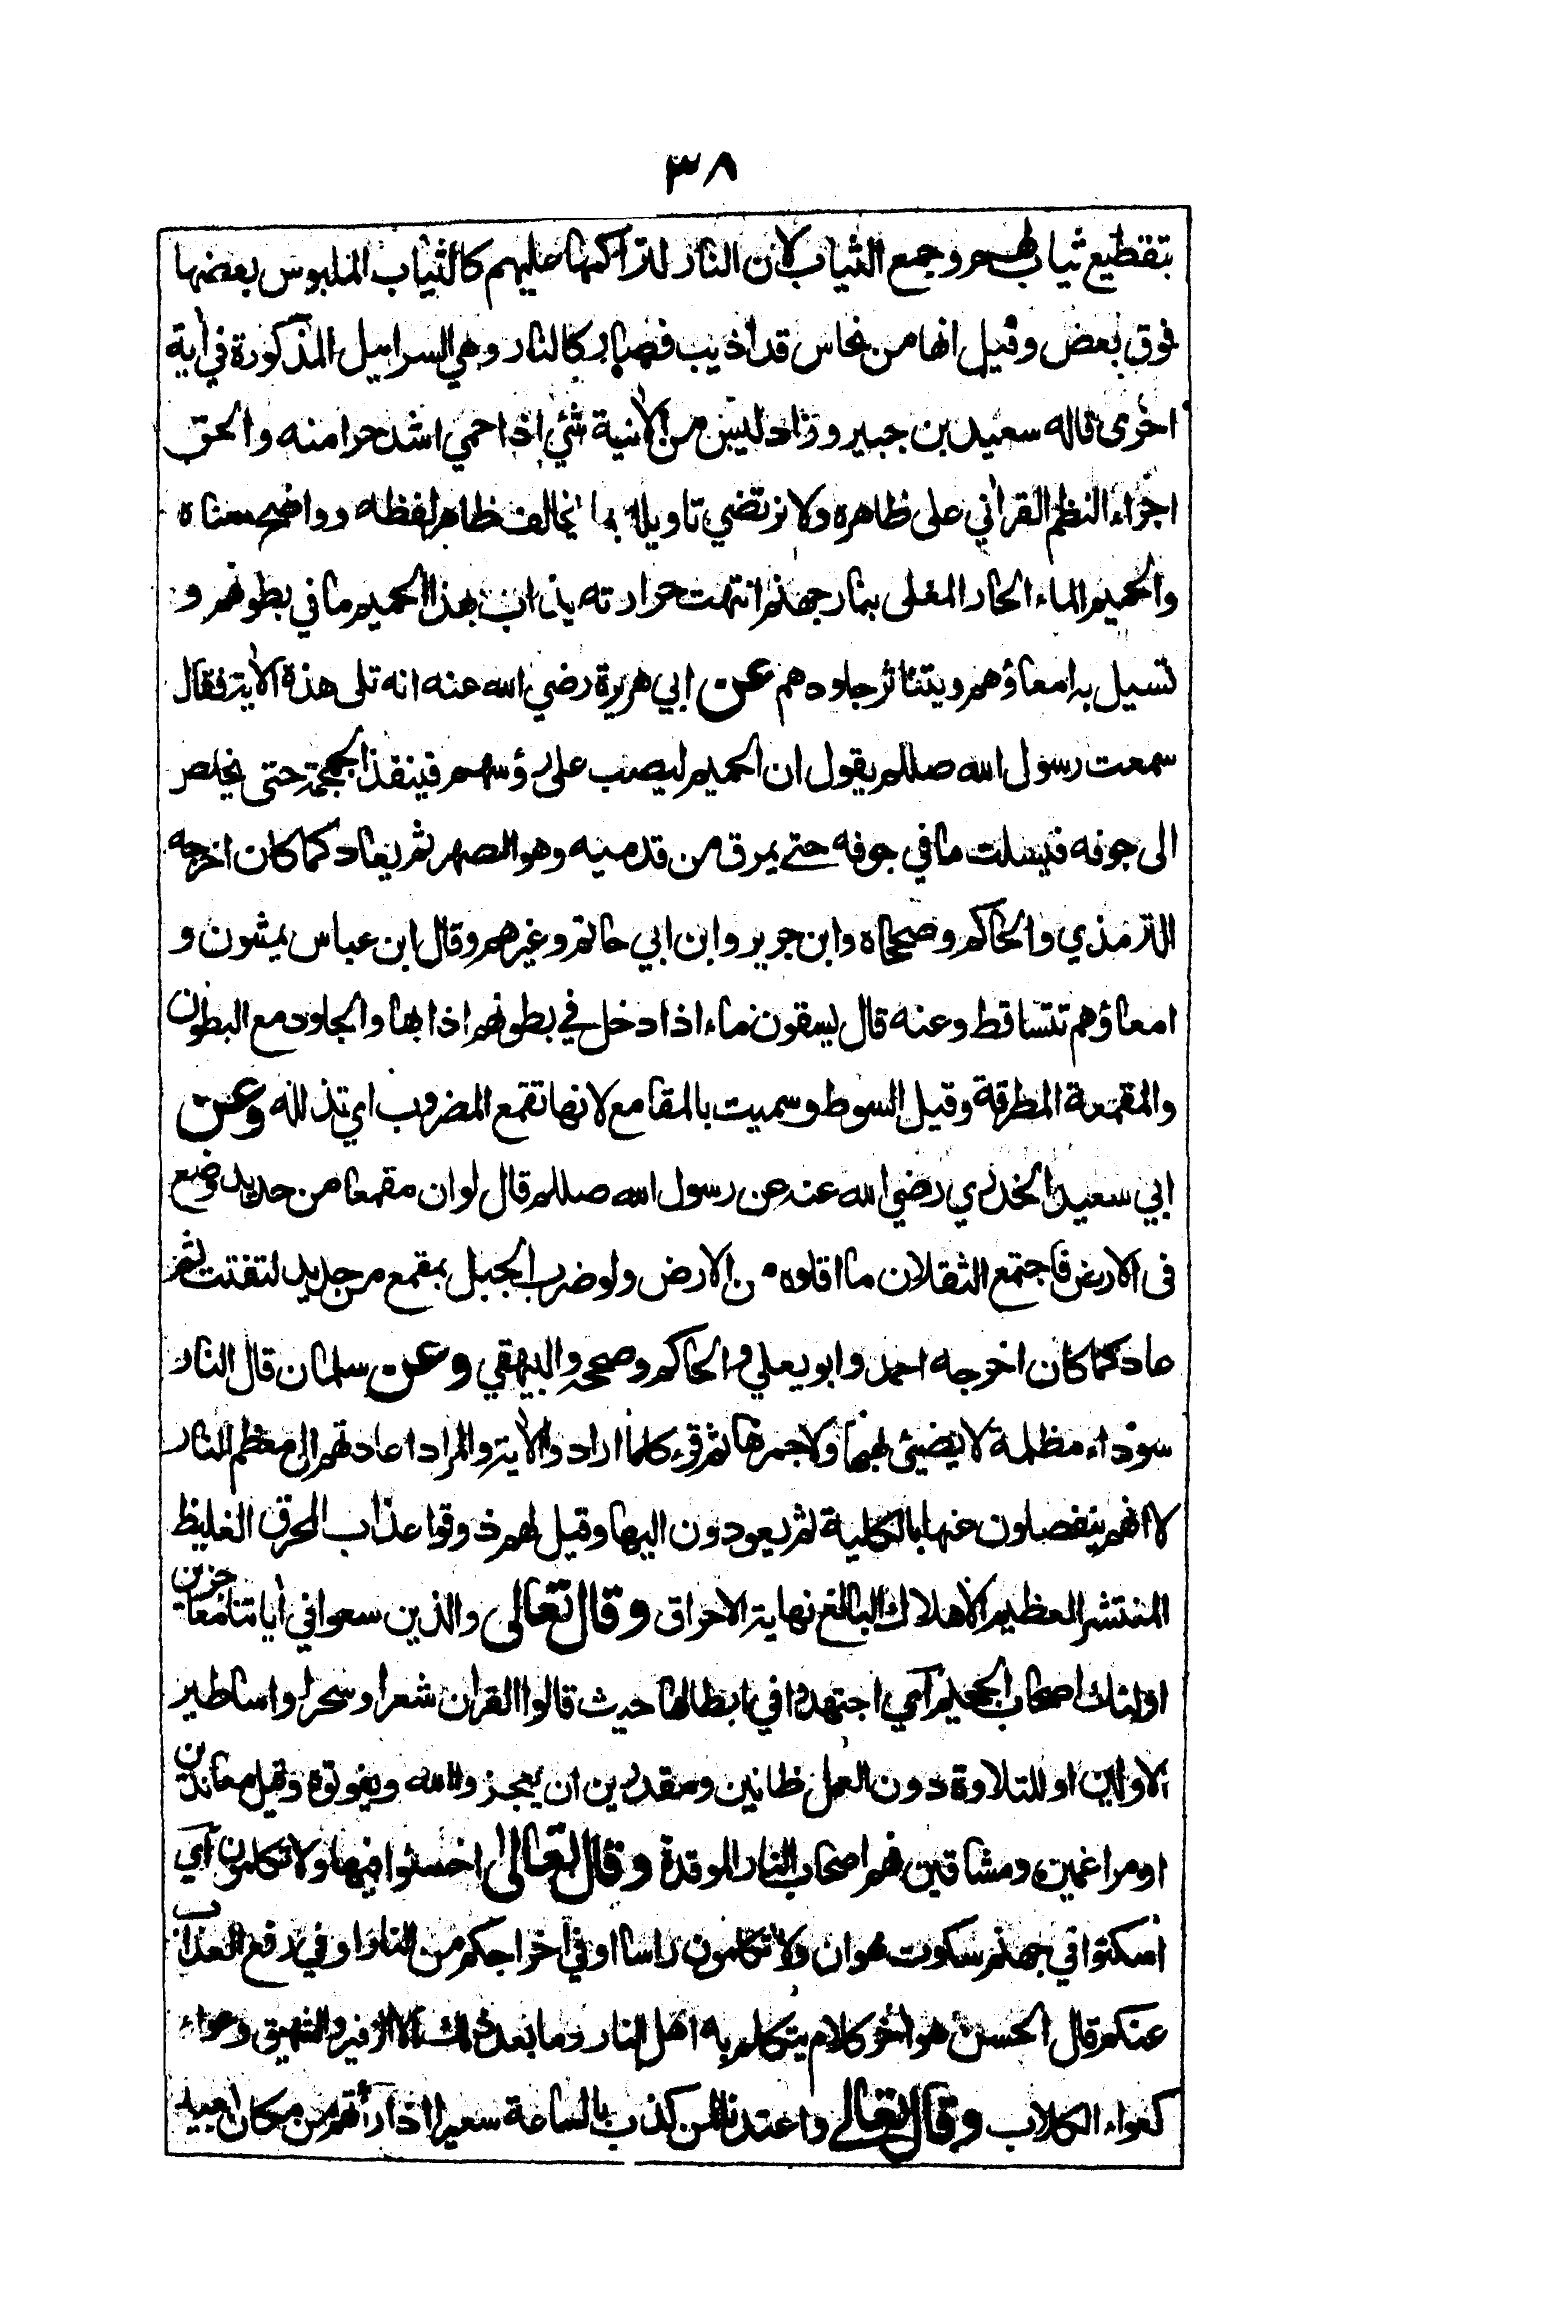 ٣٨
بتقطيع ثياب لهم وجمع الثياب لان النار لتراكمها عليهم كالثياب الملبوس بعضها
فوق بعض وقيل انها من نحاس قد اذيب فصار كالنار وهي السرابيل المذكورة في اٰية
اخرى قاله سعيد بن جبير وزاد ليس من الاٰنية شئ اذا حمي اشد حرا منه والحق
اجراء النظم القراٰني على ظاهره ولا نرتضي تاويله بما يخالف ظاهر لفظه وواضح معناه
والحميم الماء الحار المغلى بنار جهنم انتهت حرارته يذاب بهذا الحميم ما في بطونهم و
تسيل به امعاؤهم ويتناثر جلودهم عن ابي هريرة رضي الله عنه انه تلى هذه الاٰية فقال
سمعت رسول الله صللم يقول ان الحميم ليصب على رؤسهم فينفذ الجمجمة حتى يخلص
الى جوفه فيسلت ما في جوفه حتے يمرق من قدميه وهو الصهر ثم يعاد كما كان اخرجه
الترمذي والحاكم وصححاه وابن جرير وابن ابي حاتم وغيرهم وقال ابن عباس يمشون و
امعاؤهم تتساقط وعنه قال يسقون ماء اذا دخل في بطونهم اذابها والجلود مع البطون
والمقمعة المطرقة وقيل السوط وسميت بالمقامع لانها تقمع المضروب اي تذلله وعن
ابي سعيد الخدري رضي الله عنه عن رسول الله صللم قال لو ان مقمعا من حديد وضع
فى الارض فاجتمع الثقلان ما اقلوه من الارض ولو ضرب الجبل بمقمع من حديد لتفتت ثم
عاد كما كان اخرجه احمد وابو يعلي والحاكم وصححه والبيهقي وعن سلمان قال النار
سوداء مظلمة لا يضيئ لهبها ولا جمرها ثم قرء كلما ارادوا الاٰية والمراد اعادتهم الى معظم النار
لا انهم ينفصلون عنها بالكلية ثم يعودون اليها وقيل لهم ذوقوا عذاب المحرق الغليظ
المنتشر العظيم الاهلاك البالغ نهاية الاحراق وقال تعالى والذين سعوا في اٰياتنا معاجزين
اولئك اصحاب الجحيم اي اجتهدوا في ابطالها حيث قالوا القران شعرا وسحرا واساطير
الاولين او للتلاوة دون العمل ظانين ومقدرين ان يعجزوا الله ويفوتوه وقيل معاندين
او مراغمين ومشاقين فهم اصحاب النار الموقدة وقال تعالى اخسئوا فيها ولا تكلمون اي
اسكتوا في جهنم سكوت هوان ولا تكلمون راسا او في اخراجكم من النار او في رفع العذاب
عنكم قال الحسن هو اٰخر كلام يتكلم به اهل النار وما بعد ذلك الا الزفير والشهيق وعواء
كعواء الكلاب وقال تعالے واعتدنا لمن كذب بالساعة سعيرا اذا رأتهم من مكان بعيد